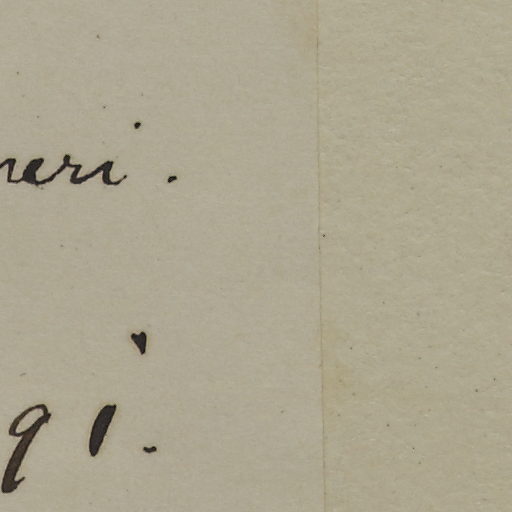 neri.
91.